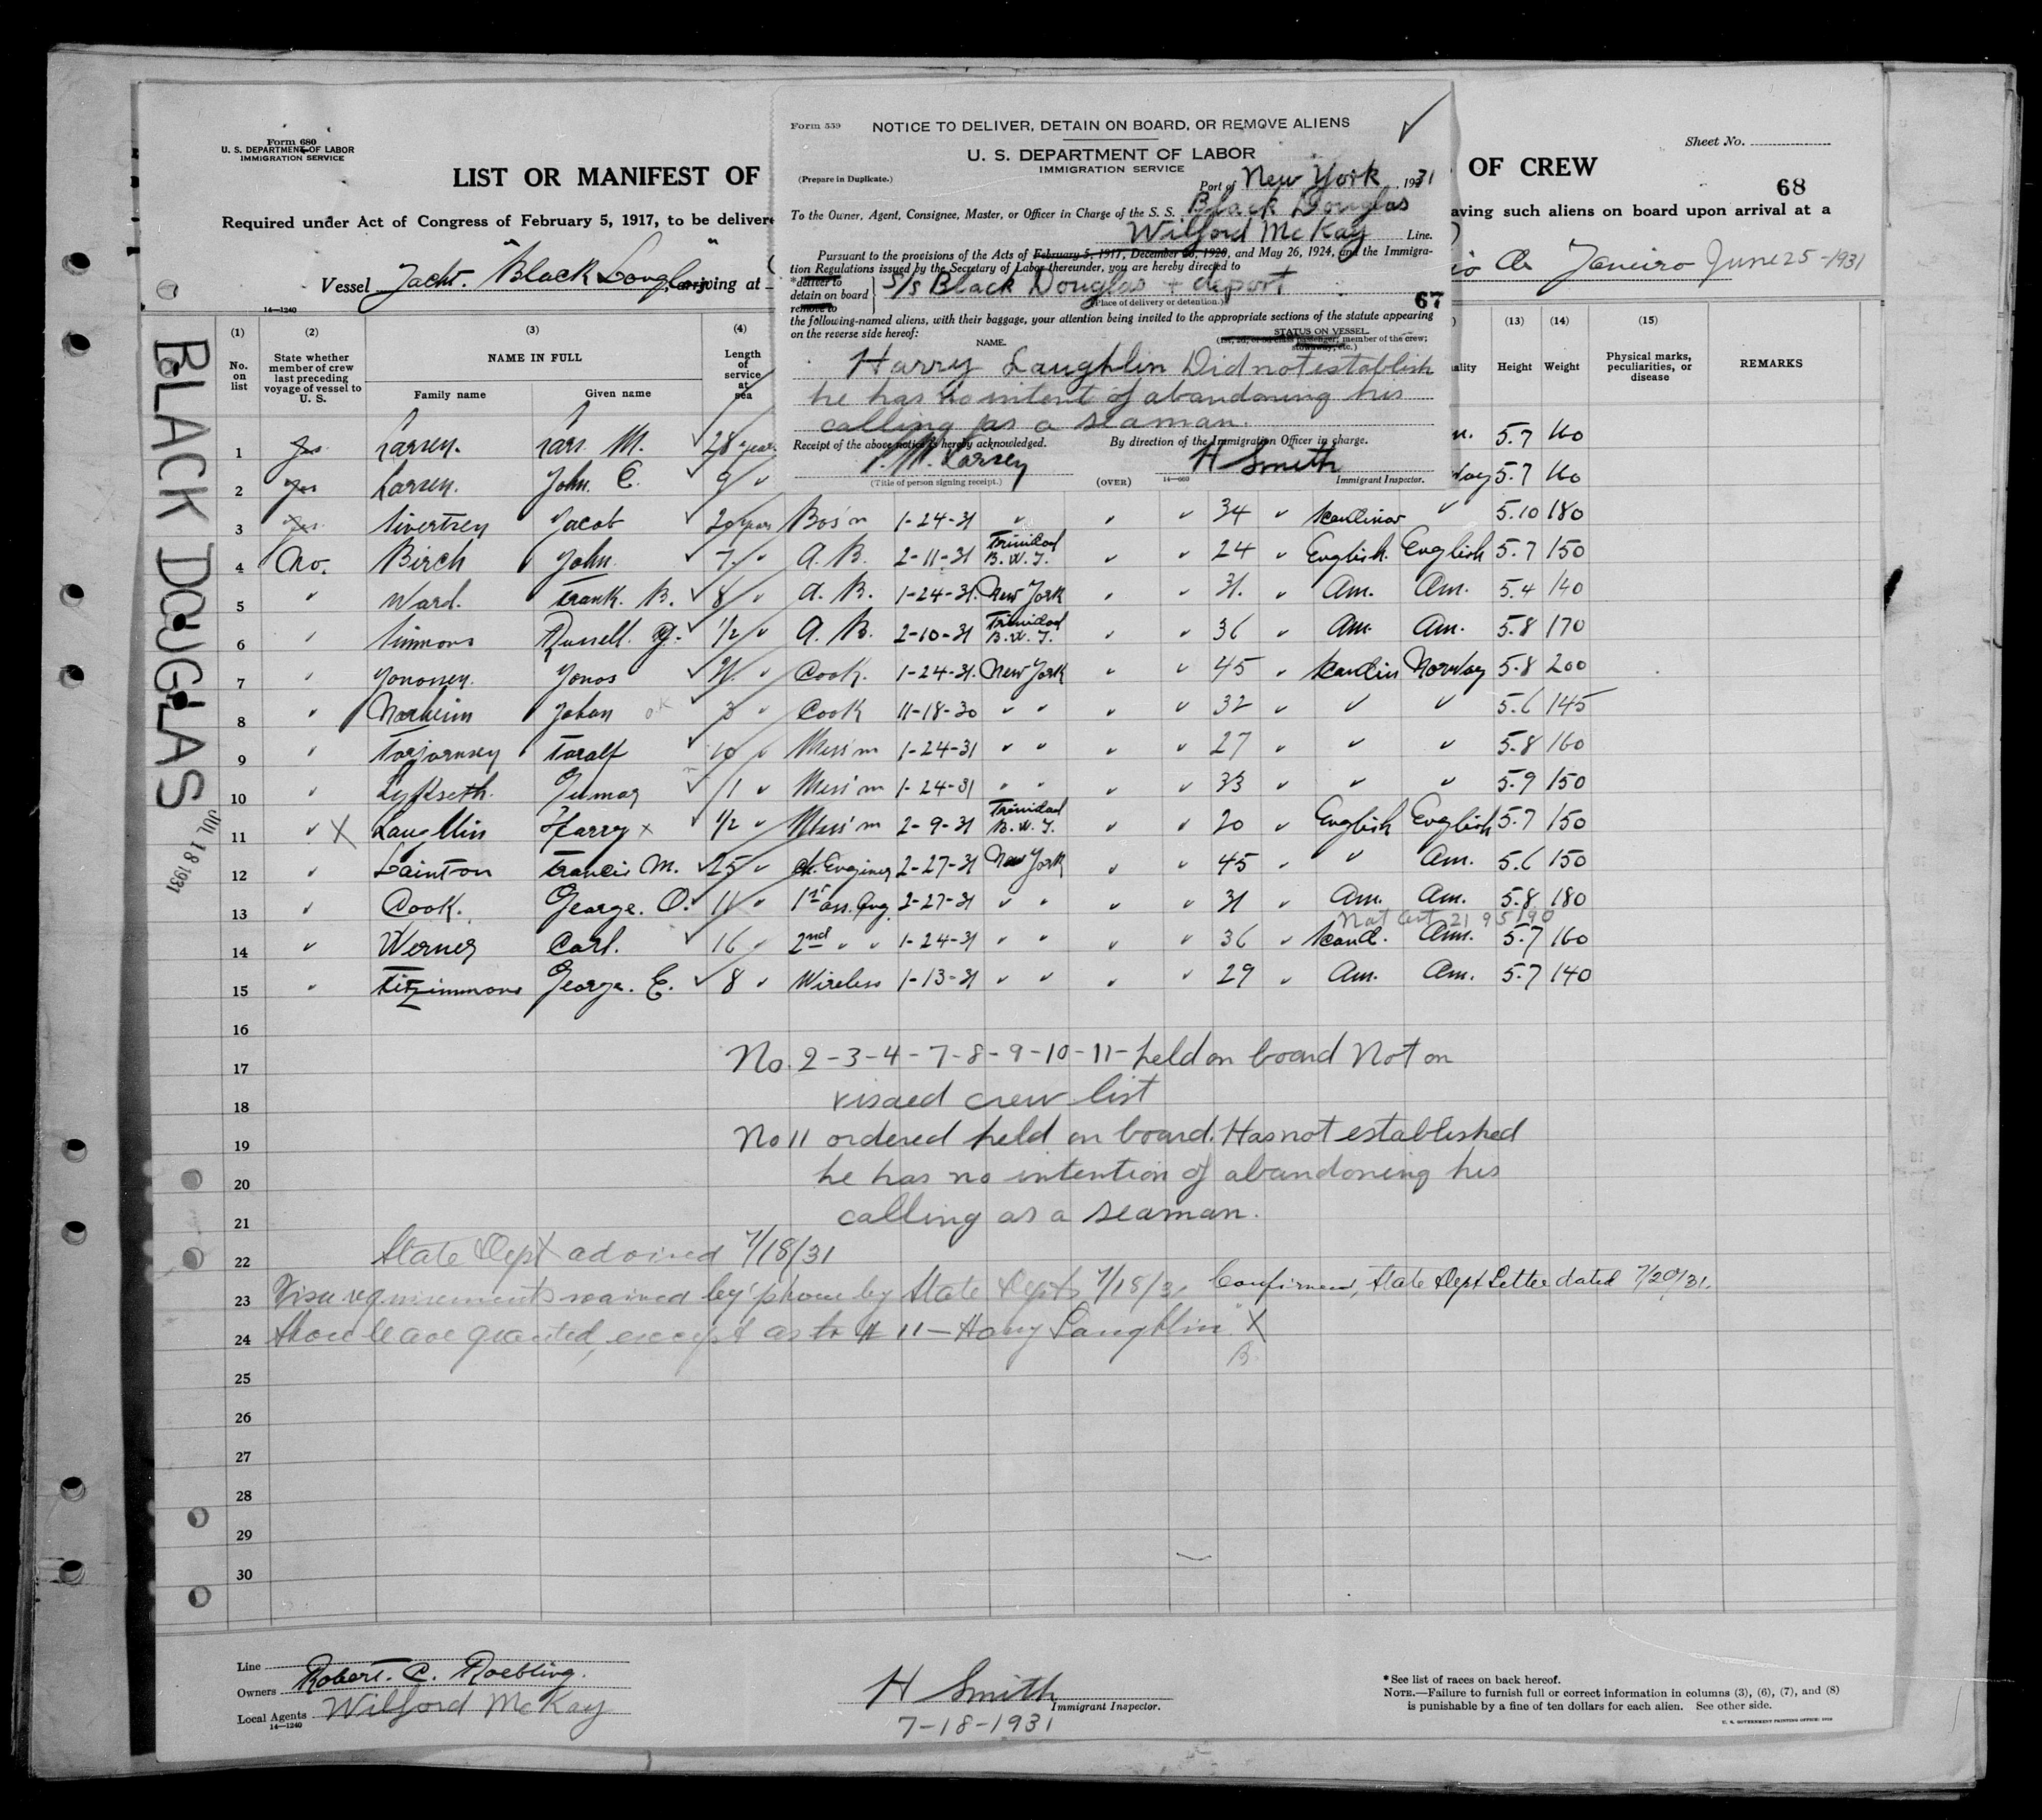 Form 680
U. S. DEPARTMENT OF LABOR
IMMIGRATION SERVICE
LIST OR MANIFEST OF
OF CREW
Sheet No.
68
Required under Act of Congress of February 5, 1917, to be delivere
aving such aliens on board upon arrival at a
Vessel Yacht. "Black Douglas" arriving at
io de Janeiro June 25-1931
14—1240
Form 559
NOTICE TO DELIVER, DETAIN ON BOARD, OR REMOVE ALIENS
U. S. DEPARTMENT OF LABOR
IMMIGRATION SERVICE
(Prepare in Duplicate.)
Port of New York, 1931
To the Owner, Agent, Consignee, Master, or Officer in Charge of the S. S. Black Douglas
Wilford McKay Line.
Pursuant to the provisions of the Acts of February 5, 1917, December 26, 1920, and May 26, 1924, and the Immigra-
tion Regulations issued by the Secretary of Labor thereunder, you are hereby directed to
*deliver to
detain on board
remove to
S/S Black Douglas + deport
(Place of delivery or detention.)
67
the following-named aliens, with their baggage, your attention being invited to the appropriate sections of the statute appearing
on the reverse side hereof:
NAME.
STATUS ON VESSEL
(1st, 2d, or 3d class passenger; member of the crew;
stowaway, etc.)
Harry Laughlin Did not establish
he has no intent of abandoning his
calling as a seaman.
Receipt of the above notice is hereby acknowledged.
By direction of the Immigration Officer in charge.
L. M. Larsen
H Smith
(Title of person signing receipt.)
(OVER)
14—660
Immigrant Inspector.
BLACK DOUGLAS
JUL 18 1931
(1) (2) (3) (4) (13) (14) (15)
No. on list
State whether member of crew last preceding voyage of vessel to U. S.
NAME IN FULL
Family name Given name
Length of service at sea
ality Height Weight
Physical marks, peculiarities, or disease
REMARKS
1 Yes Larsen. Lars M. 28 years 5.7 160
2 Yes Larsen. John. C. 9 " way 5.7 160
3 Yes Sivertsen Jacob 20 years Bos'n 1-24-31 " " " 34 " Scandinav " 5.10 180
4 No. Birch John. 7 " A. B. 2-11-31 Trinidad B. W. I. " " 24 " English. English 5.7 150
5 " Ward. Frank. B. 8 " A. B. 1-24-31. New York " " 31. " Am. Am. 5.4 140
6 " Simmons Russell. G. 1/2 " A. B. 2-10-31 Trinidad B. W. I. " " 36 " Am. Am. 5.8 170
7 " Jonossen. Jonas " Cook. 1-24-31. New York " " 45 " Scandin Norway 5.8 200
8 " Norheim Johan OK 3 " Cook 11-18-30 " " " " 32 " " " 5.6 145
9 " Torjornsen Toralf 10 " Mess'm 1-24-31 " " " " 27 " " " 5.8 160
10 " Lykseth. Gumar 1 " Mess'm 1-24-31 " " " " 33 " " " 5.9 150
11 " X Laughlin Harry x 1/2 " Mess'm 2-9-31 Trinidad B. W. I. " " 20 " English English 5.7 150
12 " Lainton Francis M. 25 " Ch. Enginer 2-27-31 New York " " 45 " " Am. 5.6 150
13 " Cook. George. O. 11 " 1st ass. Eng. 2-27-31 " " " " 31 " Am. Am. 5.8 180
Nat Cert 2195190
14 " Werner Carl. 16 " 2nd " " 1-24-31 " " " " 36 " Scand. Am. 5.7 160
15 " Fitzimmons George. E. 8 " Wireless 1-13-31 " " " " 29 " Am. Am. 5.7 140
16
17 No. 2-3-4-7-8-9-10-11- held on board Not on
18 visaed crew list
19 No 11 ordered held on board. Has not established
20 he has no intention of abandoning his
21 calling as a seaman.
22 State Dept advised 7/18/31
23 Visa requirements waived by 'phone by State Dept 7/18/31 Confirmed, State Dept Letter dated 7/20/31.
24 Shore leave granted, except as to # 11 — Harry Laughlin X
B
25
26
27
28
29
30
Line
Owners Robert. C. Roebling.
Local Agents Wilford McKay
14—1240
H Smith
Immigrant Inspector.
7-18-1931
*See list of races on back hereof.
NOTE.—Failure to furnish full or correct information in columns (3), (6), (7), and (8)
is punishable by a fine of ten dollars for each alien. See other side.
U. S. GOVERNMENT PRINTING OFFICE: